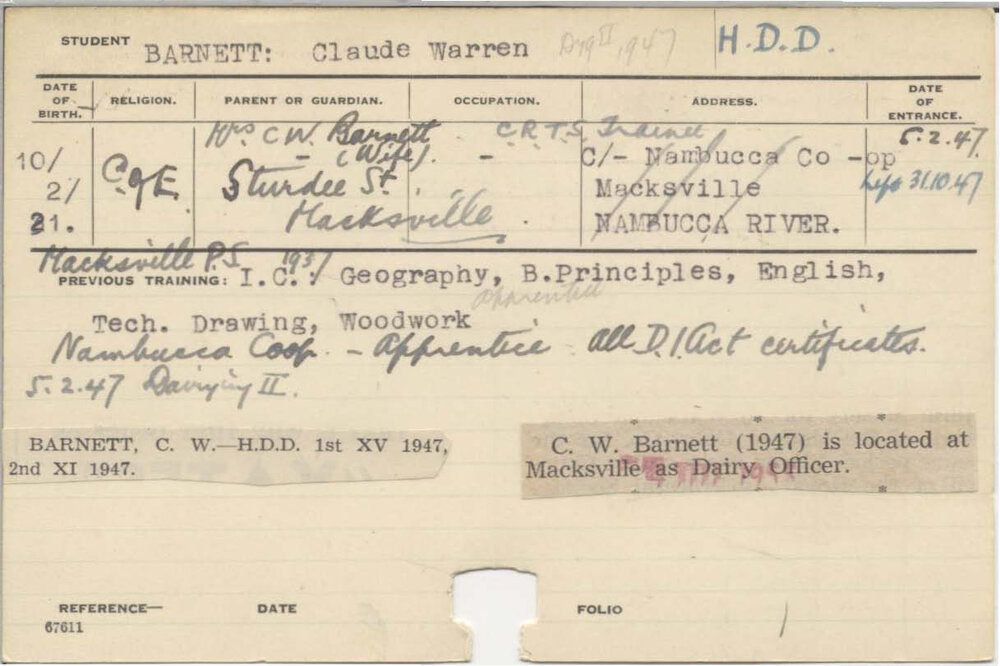 STUDENT BARNETT: Claude Warren 1947 H.D.D.
DATE OF BIRTH. RELIGION. PARENT OR GUARDIAN. OCCUPATION. ADDRESS. DATE OF ENTRANCE.
Mrs C W. Barnett C.R.T.S. Trainee 5.2.47.
10/ - (Wife). - C/- Nambucca Co-op
2/ C of E. Sturdee St. Macksville Left 31.10.47
21. Macksville. NAMBUCCA RIVER.
Macksville P.S 1937
PREVIOUS TRAINING: I.C.: Geography, B.Principles, English,
apprentice
Tech. Drawing, Woodwork
Nambucca Coop. - Apprentice all D.I. Act certificates.
5.2.47 Dairying II.
BARNETT, C. W.—H.D.D. 1st XV 1947,
2nd XI 1947.
C. W. Barnett (1947) is located at
Macksville as Dairy Officer.
REFERENCE— DATE FOLIO
67611